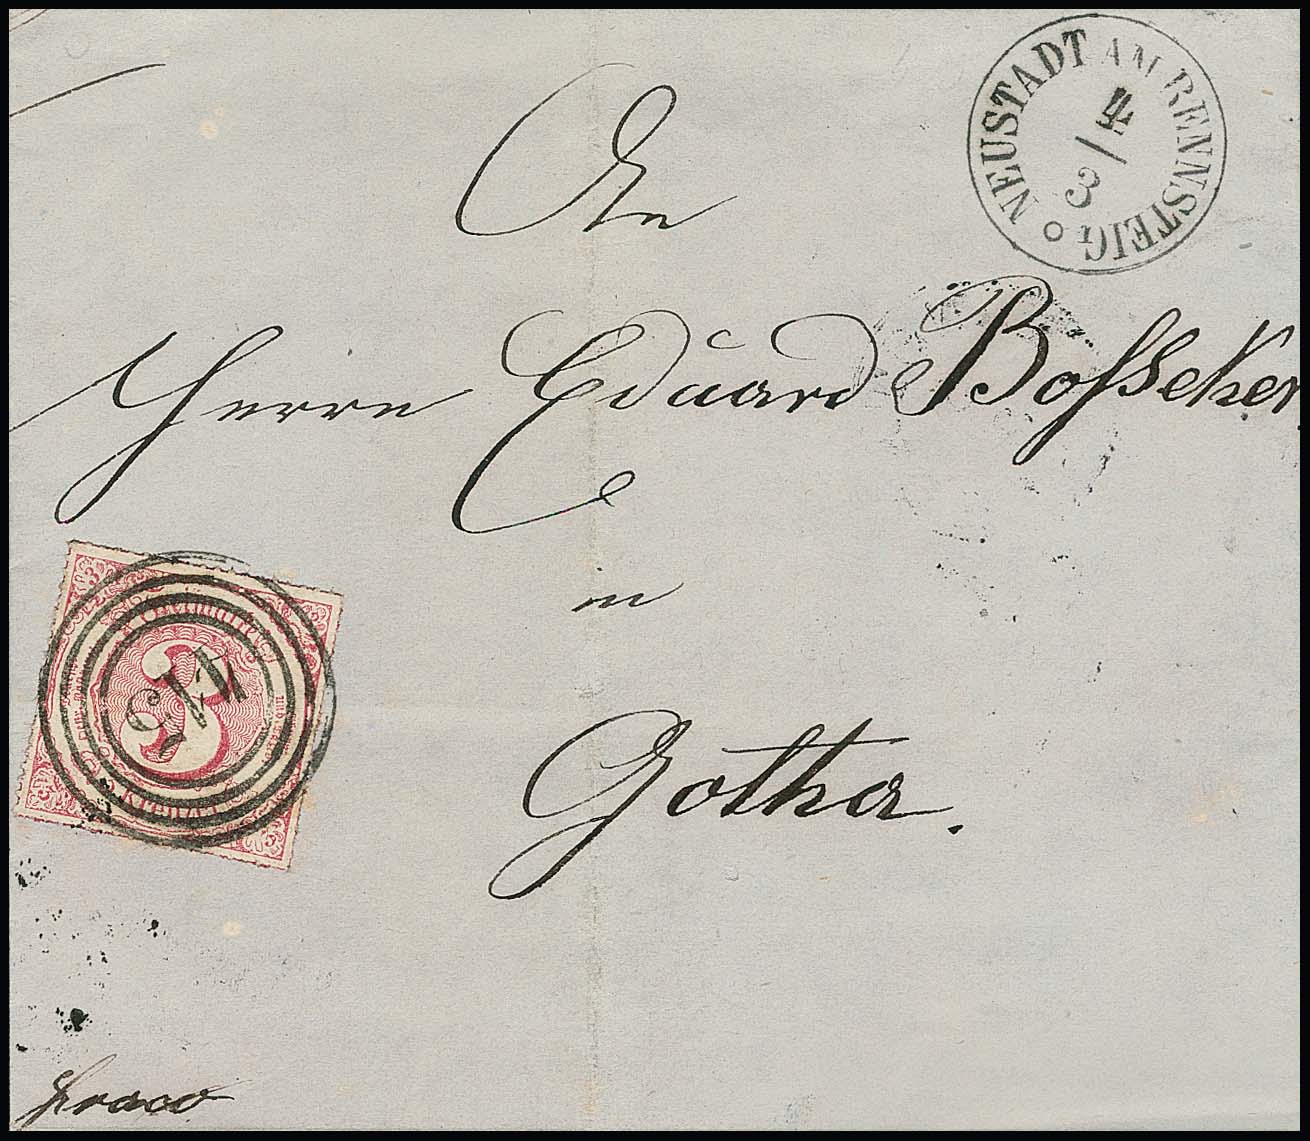 NEUSTADT AM RENNSTEIG
3/4
An
Herrn Eduard Bosseker
in
Gotha.
3
Kreuzer
franco